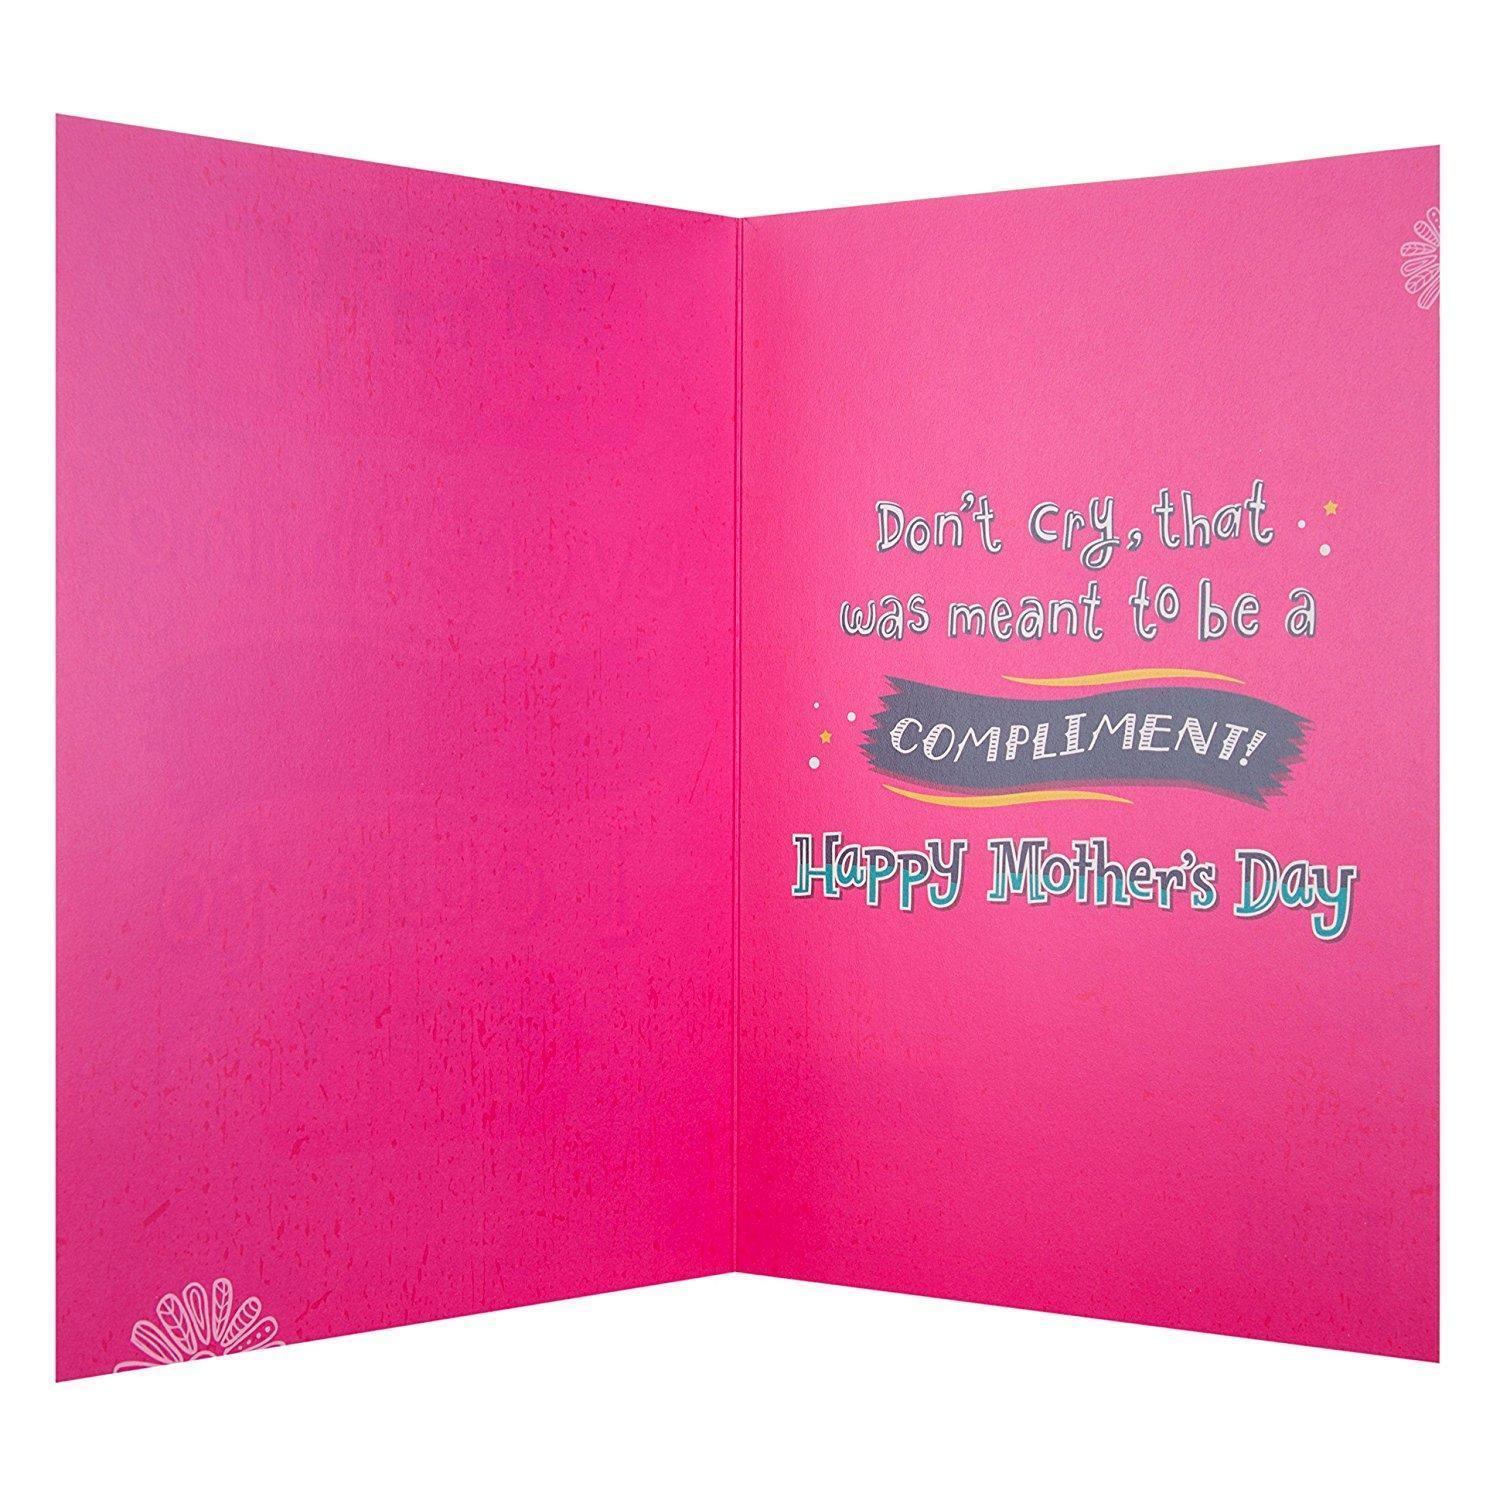 Don't cry, that
was meant to be a
COMPLIMENT!
Happy Mother's Day